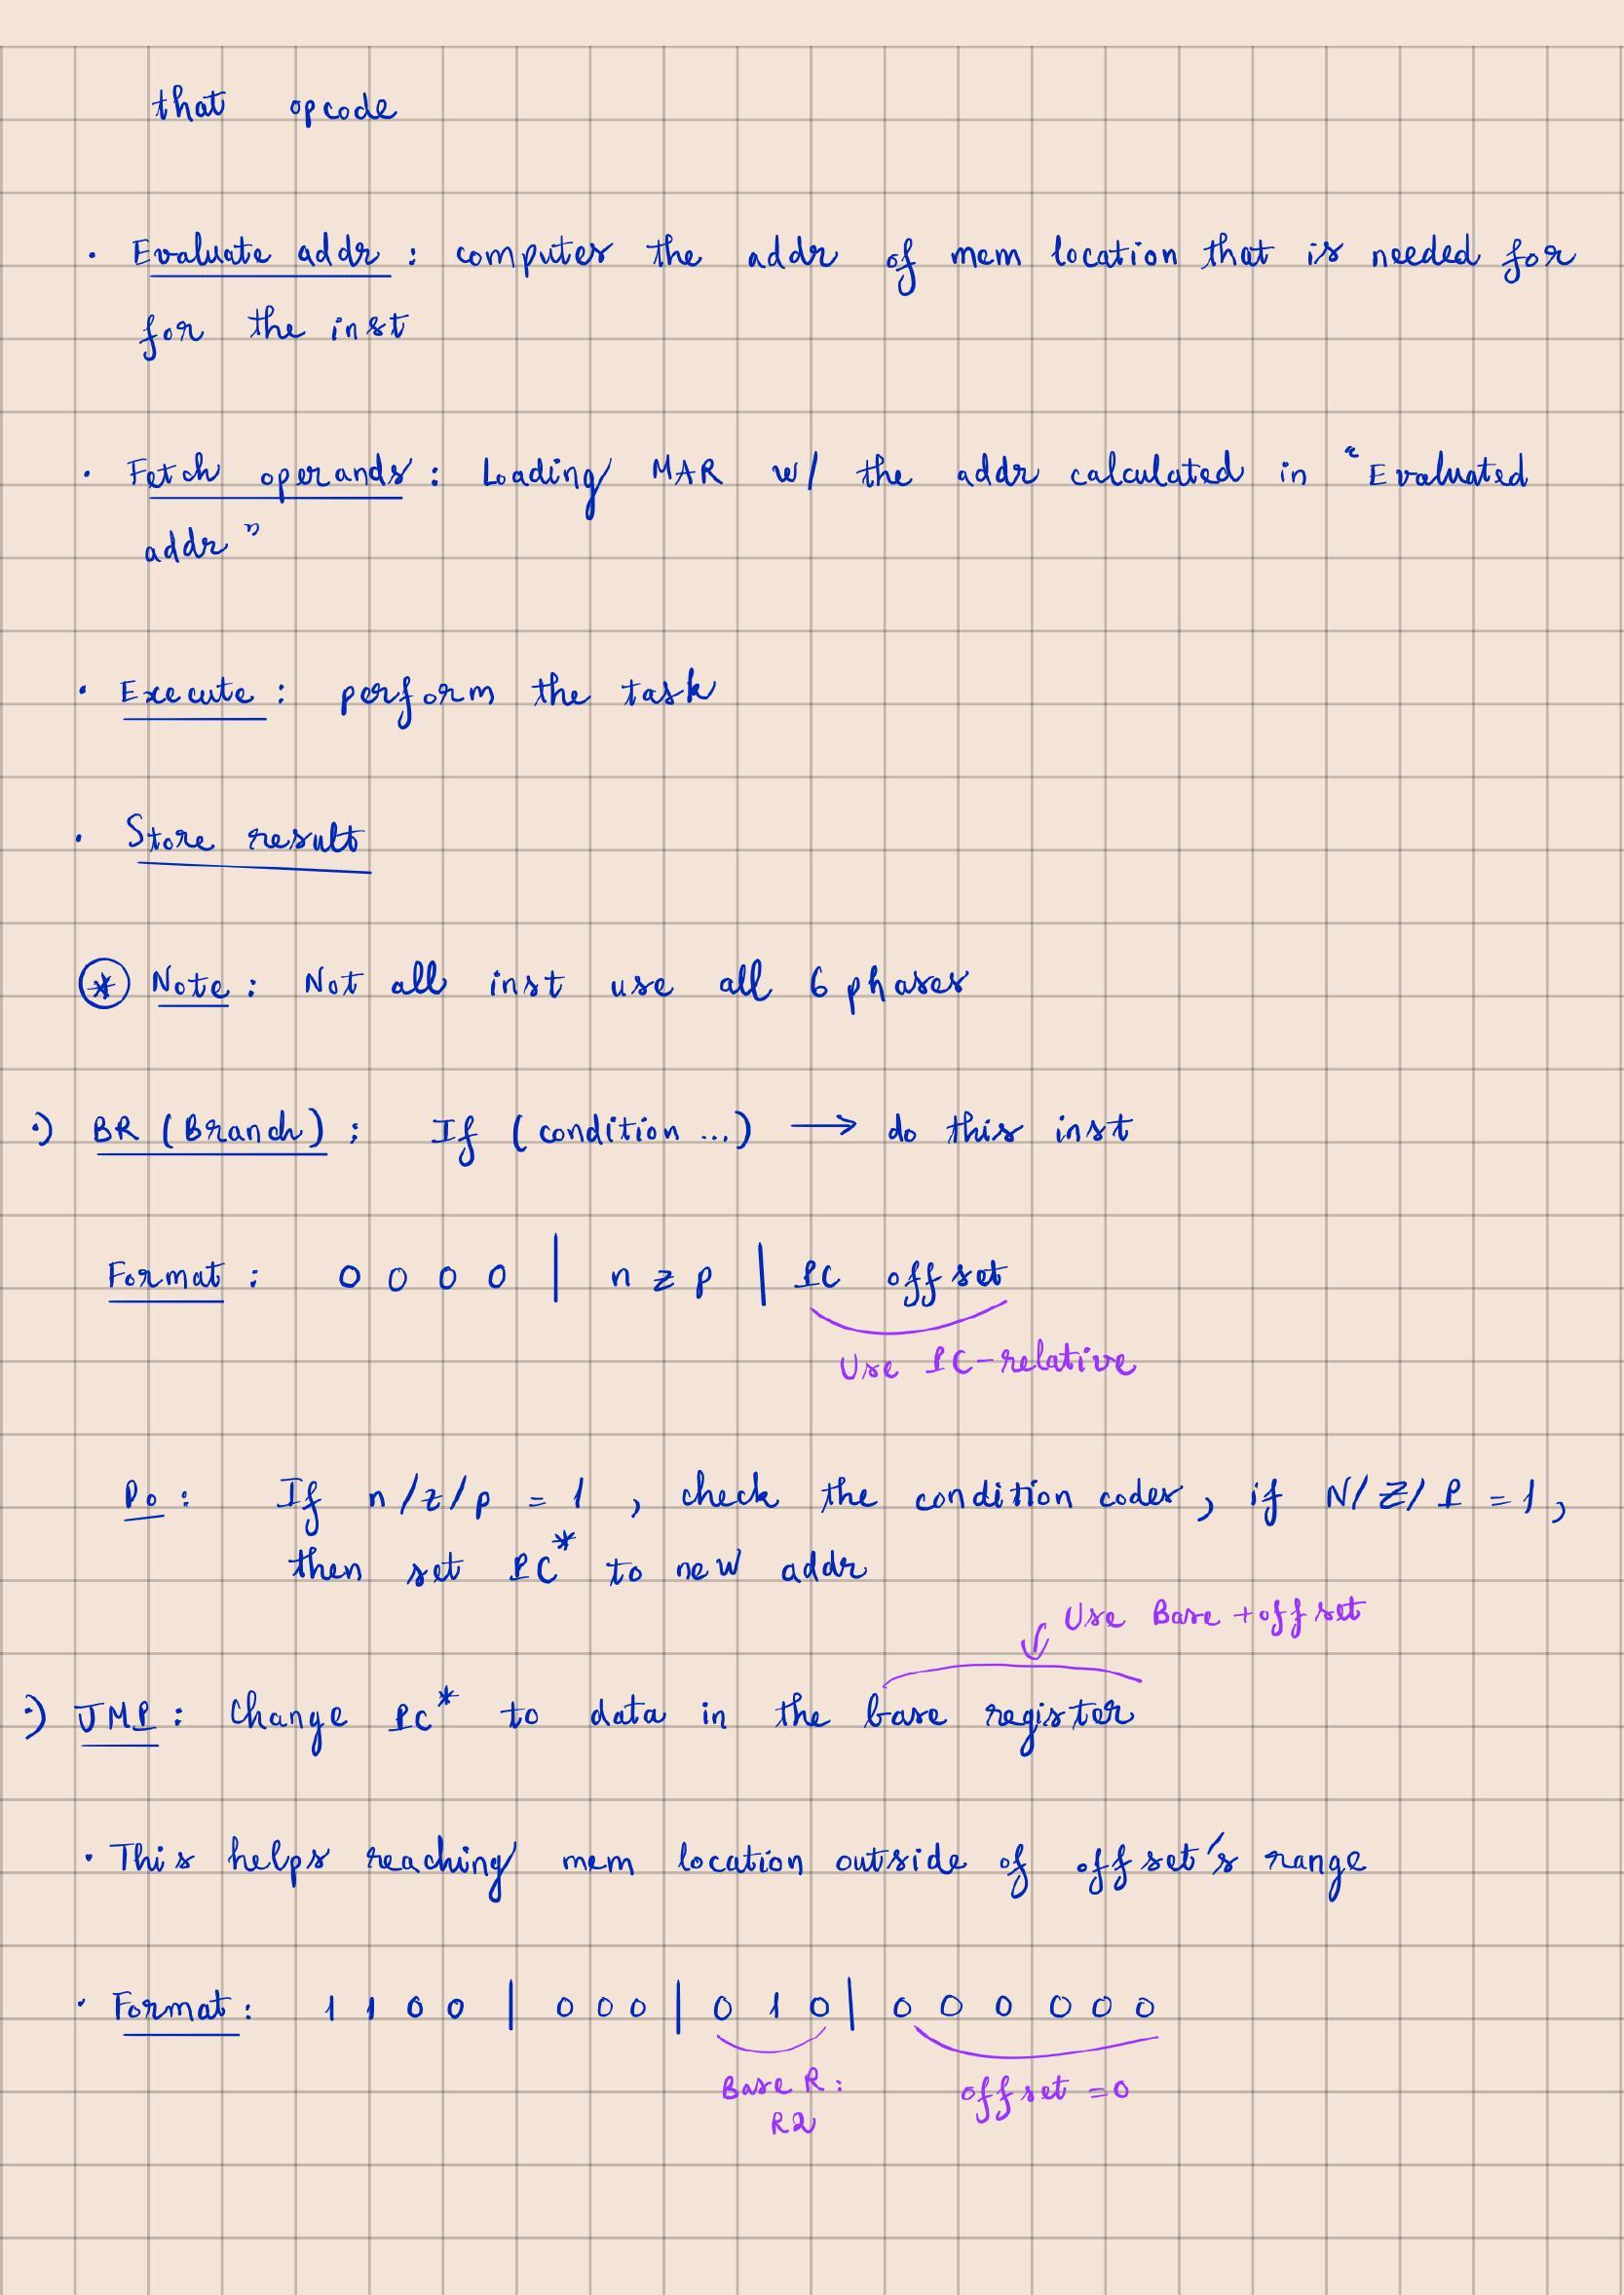 that opcode
· Evaluate addr : computes the addr of mem location that is needed for
for the inst
· Fetch operands : Loading MAR w/ the addr calculated in "Evaluated
addr"
· Execute : perform the task
· Store result
* Note : Not all inst use all 6 phases
·) BR (Branch) : If (condition ...) → do this inst
Format : 0 0 0 0 | n z p | PC offset
Use PC-relative
Do : If n/z/p = 1 , check the condition codes , if N/Z/P = 1 ,
then set PC* to new addr
Use Base + offset
·) JMP : Change PC* to data in the base register
· This helps reaching mem location outside of offset's range
· Format : 1 1 0 0 | 0 0 0 | 0 1 0 | 0 0 0 0 0 0
Base R : offset = 0
R2